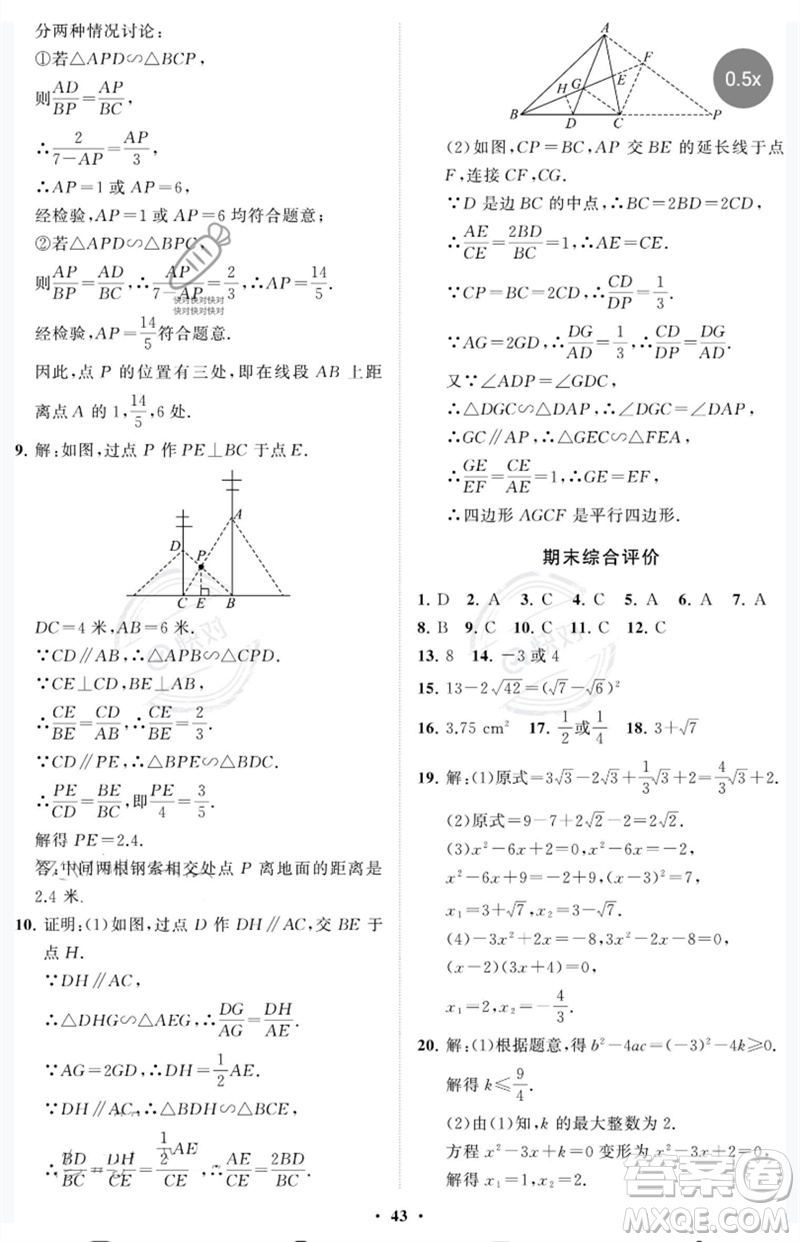 分两种情况讨论:
①若△APD∽△BCP,
则AD/BP=AP/BC,
∴2/(7-AP)=AP/3,
∴AP=1 或 AP=6,
经检验,AP=1 或 AP=6 均符合题意;
②若△APD∽△BPC,
则AP/BP=AD/BC,∴AP/(7-AP)=2/3,∴AP=14/5.
快对快对快对
快对快对快对
经检验,AP=14/5符合题意.
因此,点 P 的位置有三处,即在线段 AB 上距
离点 A 的 1,14/5,6 处.
9. 解:如图,过点 P 作 PE⊥BC 于点 E.
A
D
P
C E B
DC=4 米,AB=6 米.
∵CD∥AB,∴△ABP∽△CPD.
∵CE⊥CD,∴△ABP∽△CPD.
∴CE/BE=CD/AB,∴CE/BE=2/3.
∵CD∥PE,∴△BPE∽△BDC.
∴PE/CD=BE/BC,即PE/4=3/5.
解得 PE=2.4.
答:中间两根钢索相交处点 P 离地面的距离是
2.4 米.
10. 证明:(1)如图,过点 D 作 DH∥AC,交 BE 于
点 H.
∵DH∥AC,
∴△DHG∽△AEG,∴DG/AG=DH/AE.
∵AG=2GD,∴DH=1/2AE.
∵DH∥AC,∴△BDH∽△BCE.
∴BD/BC=DH/CE=1/2AE/CE,∴AE/CE=2BD/BC.
A
F
E
H G
B D C P
0.5x
(2)如图,CP=BC,AP 交 BE 的延长线于点
F,连接 CF,CG.
∵D 是边 BC 的中点,∴BC=2BD=2DC.
∴AE/CE=2BD/BC=1,∴AE=CE.
∵CP=BC,∴CP=2CD,∴CD/DP=1/3.
∵AG=2GD,∴DG/AD=1/3,∴CD/DP=DG/AD.
又∵∠ADP=∠GDC,
∴△DGC∽△DAP,∴∠DGC=∠DAP.
∴GC∥AP,∴△GEC∽△FEA,
∴GE/EF=CE/AE=1,∴GE=EF.
∴四边形 AGCF 是平行四边形.
期末综合评价
1. D 2. A 3. C 4. C 5. A 6. A 7. A
8. B 9. C 10. C 11. C 12. C
13. 8 14. -3 或 4
15. 13-2√42=(√7-√6)²
16. 3.75 cm² 17. 1/2或1/4 18. 3+√7
19. 解:(1)原式=3√3-2√3+1/3√3+2=4/3√3+2.
(2)原式=9-7+2√2-2=2√2.
(3)x²-6x=-2,x²-6x+9=-2+9,
x²-6x+9=7,(x-3)²=7,x-3=±√7,
x₁=3+√7,x₂=3-√7.
(4)-3x²+2x+8=0,3x²-2x-8=0,
(x-2)(3x+4)=0,x-2=0 或 3x+4=0,
x₁=2,x₂=-4/3.
20. 解:(1)根据题意,得 b²-4ac=(-3)²-4k≥0.
解得 k≤9/4.
(2)由(1)知,k 的最大整数为 2.
方程 x²-3x+k=0 变形为 x²-3x+2=0.
解得 x₁=1,x₂=2.
• 43 •
答案圈
MXQE.COM